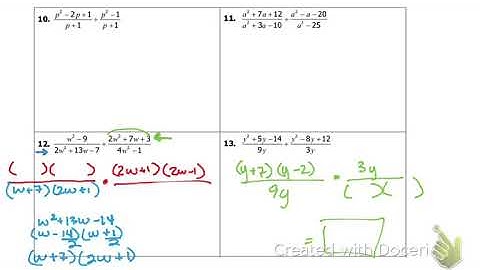 10. (p²−2p+1)/(p+1) ÷ (p²−1)/(p+1)
11. (a²+7a+12)/(a²+3a−10) ÷ (a²−a−20)/(a²−25)
12. (w²−9)/(2w²+13w−7) ÷ (2w²+7w+3)/(4w²−1)
( )( )/(w+7)(2w+1) • (2w+1)(2w−1)
w²+13w−14
(w−14/2)(w+1/2)
(w+7)(2w+1)
13. (y²+5y−14)/9y ÷ (y²−8y+12)/3y
(y+7)(y−2)/9y • 3y/( )( )
=
Created with Doceri